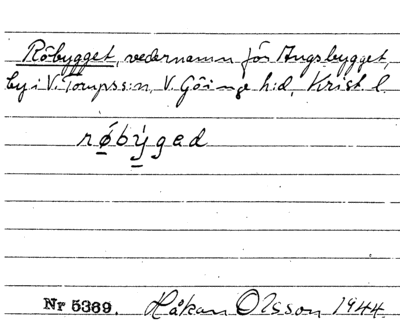 Röbygget, vedernamn för Ängsbygget,
by i V. Torups s:n, V. Göinge h:d, Krist. l.
rǿbýgəd
Nr 5369. Håkan Olsson 1944.